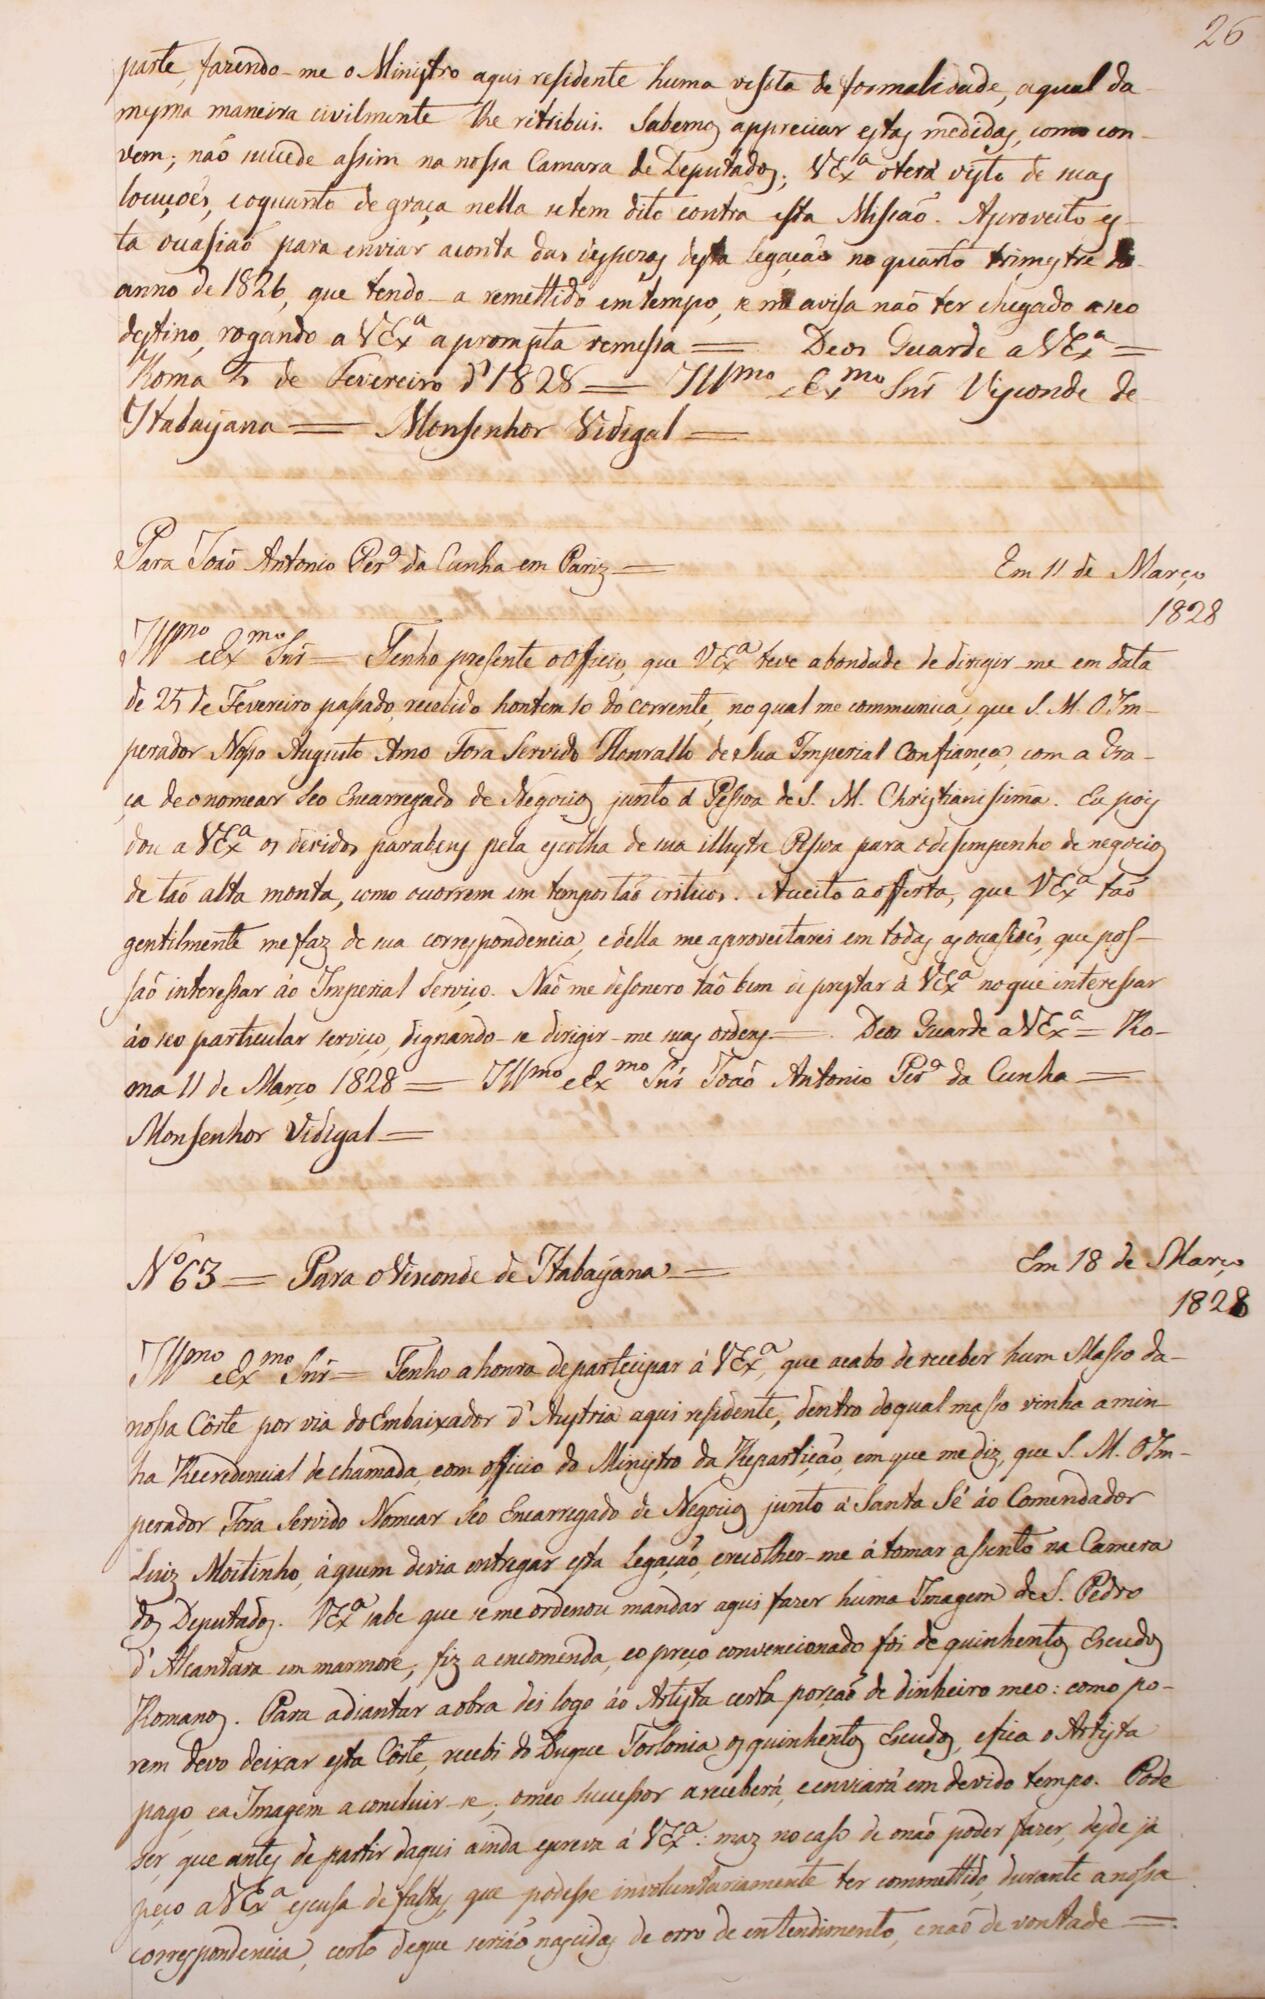 26
parte, fazendo-me o Ministro aqui residente huma visita de formalidade, aqual da
mesma maneira civilmente lhe retribui. Sabemos appreciar estas medidas, como con-
vem; não sucede assim na nossa Camara de Deputados; VExª oterá visto de suas
locuções, eoquanto de graça nella setem dito contra esta Missão. Aproveito es-
ta occasião para enviar aconta das despezas desta Legação no quarto trimestre do
anno de 1826, que tendo-a remettido emtempo, se me avisa não ter chegado aseo
destino, rogando a VExª aprompta remessa = Deos Guarde a VExª =
Roma 5 de Fevereiro d'1828 = Illmo eExmo Snr Visconde de
Itabayana = Monsenhor Vidigal =
Para João Antonio Perª da Cunha em Pariz = Em 11 de Março
1828
Illmo eExmo Snr = Tenho presente oOfficio, que VExª teve abondade de dirigir-me em data
de 25 de Fevereiro passado, recebido hontem 10 do corrente, no qual me communica, que S. M. OIm-
perador Nosso Augusto Amo Fora Servido Honrallo de Sua Imperial Confiança, com a Gra-
ça de onomear Seo Encarregado de Negocios junto á Pessoa de S. M. Christianissima. Eu pois
dou a VExª os devidos parabens pela escolha de sua illustre Pessoa para odesempenho de negocios
de tão alta monta, como ocorrem em tempos tão criticos. Aceito aofferta, que VExª tão
gentilmente mefaz de sua correspondencia, edella me aproveitarei em todas as ocasiões, que pos-
são interessar áo Imperial Serviço. Não me desonero tão bem de prestar á VExª noque interessar
áo seo particular serviço, dignando-se dirigir-me suas ordens =. Deos Guarde a VExª = Ro-
ma 11 de Março 1828 = Illmo eExmo Snr João Antonio Perª da Cunha =
Monsenhor Vidigal =
Nº 63 = Para oVisconde de Itabayana = Em 18 de Março
1828
Illmo eExmo Snr = Tenho ahonra departicipar á VExª, que acabo de receber hum Masso da-
nossa Côrte por via do Embaixador d'Austria aqui residente, dentro doqual masso vinha amin
ha Recredencial de chamada, com officio do Ministro da Repartição, em que me diz, que S. M. OIm-
perador Fora Servido Nomear Seo Encarregado de Negocios junto á Santa Sé áo Comendador
Luiz Moitinho, áquem devia entregar esta Legação, erecolher-me átomar assento na Camera
dos Deputados. VExª sabe que seme ordenou mandar aqui fazer huma Imagem de S. Pedro
d'Alcantara em marmore; fiz a encomenda, eo preço convencionado foi de quinhentos Escudos
Romanos. Para adiantar aobra dei logo áo Artista certa porção de dinheiro meo: como po-
rem devo deixar esta Côrte, recebi do Duque Torlonia os quinhentos Escudos, efica o Artista
pago, ea Imagem aconcluir-se; omeo successor areceberá, eenviará em devido tempo. Pode
ser, que antes de partir daqui ainda escreva á VExª: maz nocaso de onão poder fazer, desde já
peço a VExª escusa de faltas, que podesse involuntariamente ter commettido, durante anossa
correspondencia, certo deque serião nascidas de erro de entendimento, enão de vontade =.